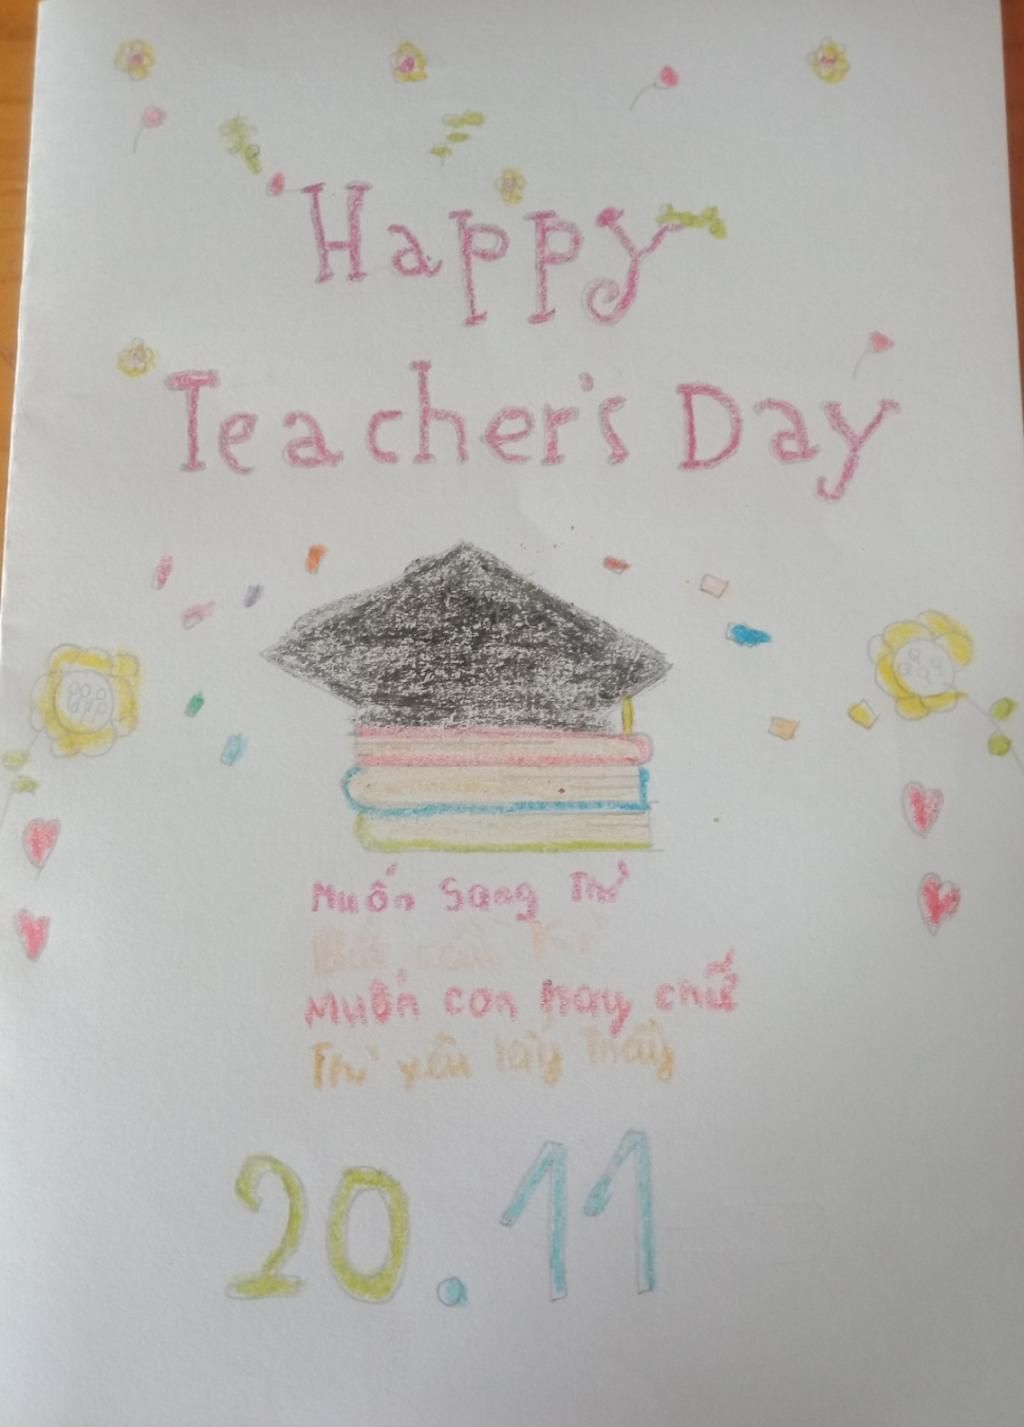 Happy
Teacher's Day
Muốn sang thì
Bắc cầu kiều
Muốn con hay chữ
Thì yêu lấy thầy
20.11